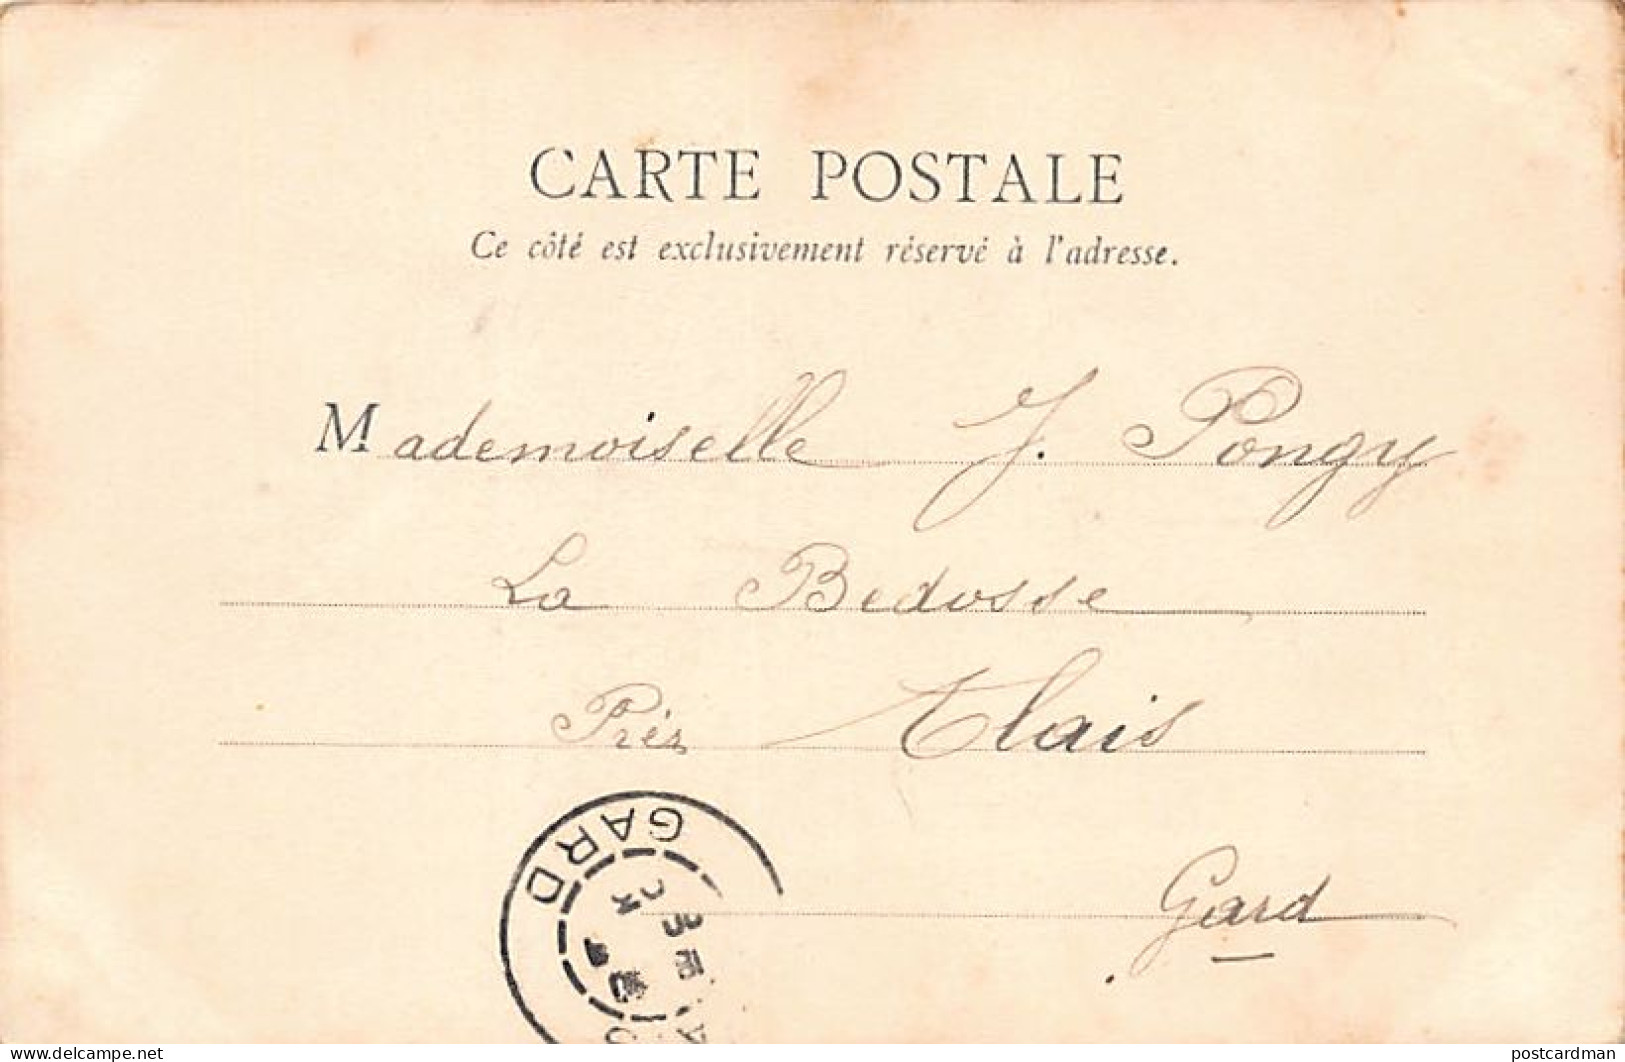 CARTE POSTALE
Ce côté est exclusivement réservé à l'adresse.
Mademoiselle J. Pongy
La Bedosse
Près Alais
Gard
GARD
delcampe.net
postcardman